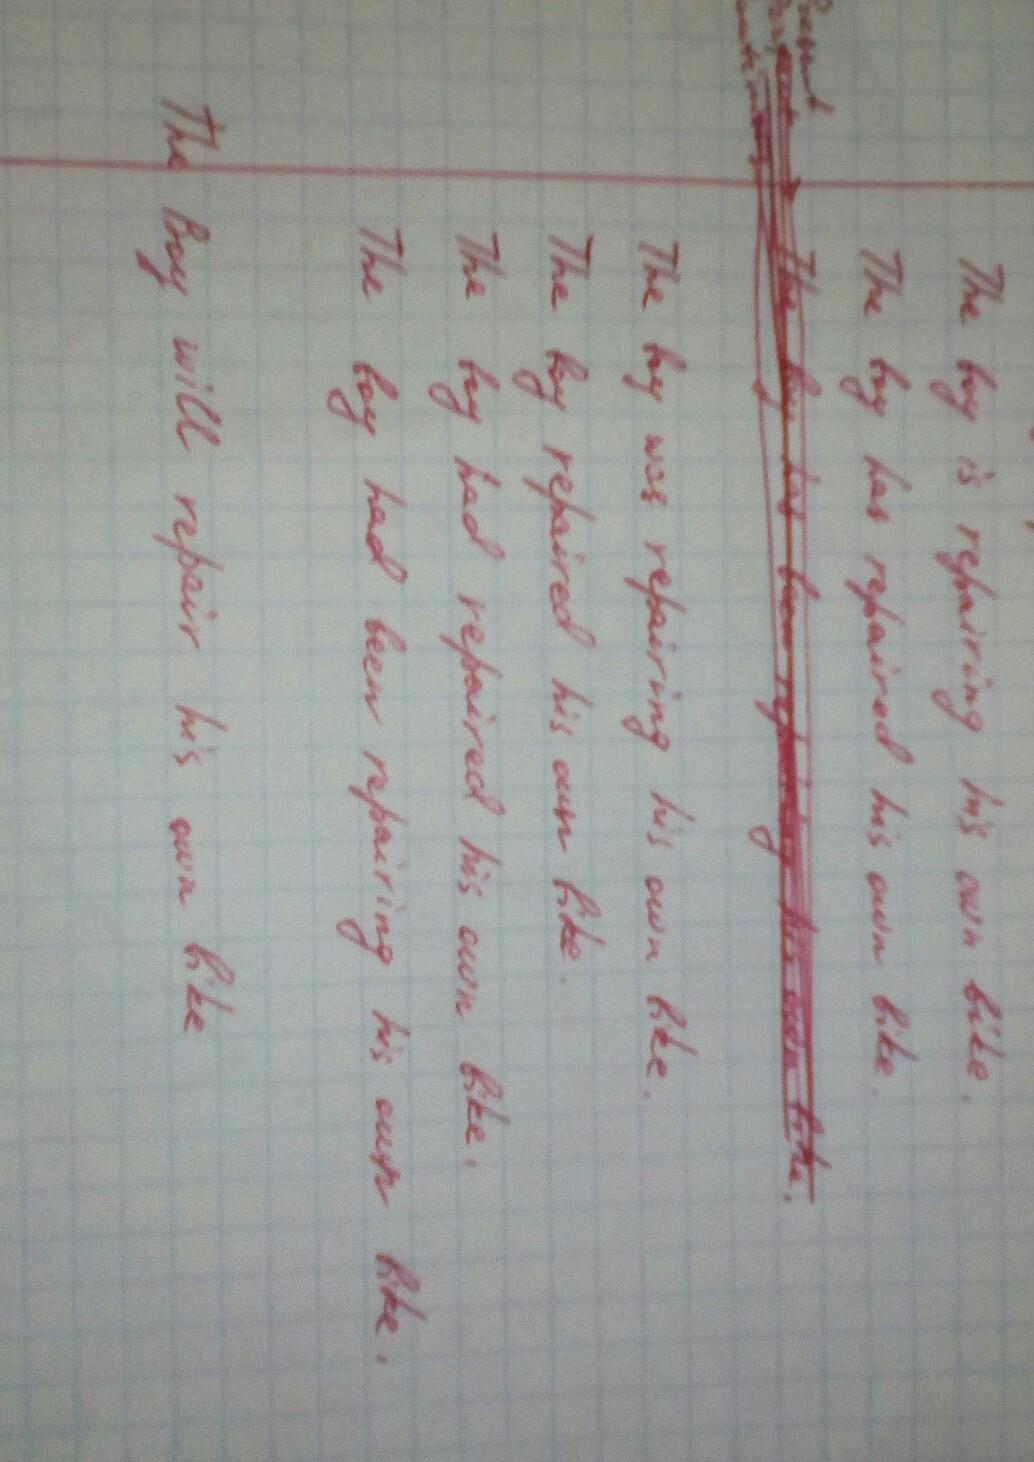 The boy is repairing his own bike.
The boy has repaired his own bike.
Present
The boy has been repairing his own bike.
The boy was repairing his own bike.
The boy repaired his own bike.
The boy had repaired his own bike.
The boy had been repairing his own bike.
The Boy will repair his own bike